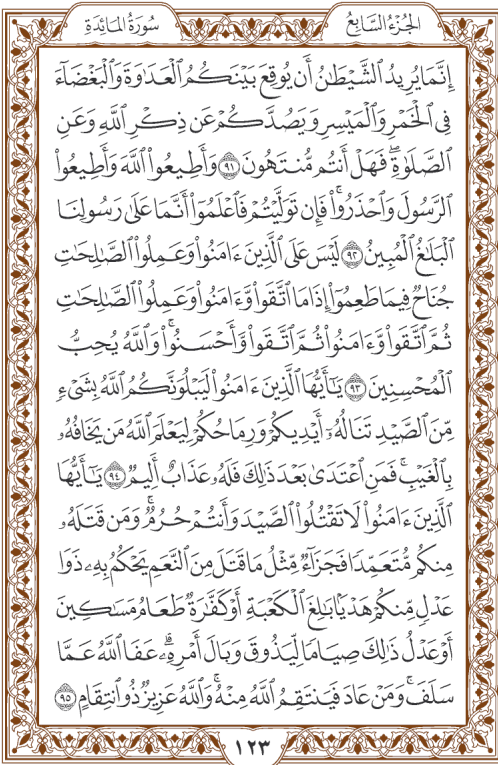 الجُزْءُ السَّابِعُ
سُورَةُ المَائِدَةِ
إِنَّمَا يُرِيدُ ٱلشَّيْطَٰنُ أَن يُوقِعَ بَيْنَكُمُ ٱلْعَدَٰوَةَ وَٱلْبَغْضَآءَ
فِي ٱلْخَمْرِ وَٱلْمَيْسِرِ وَيَصُدَّكُمْ عَن ذِكْرِ ٱللَّهِ وَعَنِ
ٱلصَّلَوٰةِۖ فَهَلْ أَنتُم مُّنتَهُونَ ٩١ وَأَطِيعُوا۟ ٱللَّهَ وَأَطِيعُوا۟
ٱلرَّسُولَ وَٱحْذَرُوا۟ۚ فَإِن تَوَلَّيْتُمْ فَٱعْلَمُوٓا۟ أَنَّمَا عَلَىٰ رَسُولِنَا
ٱلْبَلَٰغُ ٱلْمُبِينُ ٩٢ لَيْسَ عَلَى ٱلَّذِينَ ءَامَنُوا۟ وَعَمِلُوا۟ ٱلصَّٰلِحَٰتِ
جُنَاحٌ فِيمَا طَعِمُوٓا۟ إِذَا مَا ٱتَّقَوا۟ وَّءَامَنُوا۟ وَعَمِلُوا۟ ٱلصَّٰلِحَٰتِ
ثُمَّ ٱتَّقَوا۟ وَّءَامَنُوا۟ ثُمَّ ٱتَّقَوا۟ وَّأَحْسَنُوا۟ۗ وَٱللَّهُ يُحِبُّ
ٱلْمُحْسِنِينَ ٩٣ يَٰٓأَيُّهَا ٱلَّذِينَ ءَامَنُوا۟ لَيَبْلُوَنَّكُمُ ٱللَّهُ بِشَىْءٍ
مِّنَ ٱلصَّيْدِ تَنَالُهُۥٓ أَيْدِيكُمْ وَرِمَاحُكُمْ لِيَعْلَمَ ٱللَّهُ مَن يَخَافُهُۥ
بِٱلْغَيْبِۚ فَمَنِ ٱعْتَدَىٰ بَعْدَ ذَٰلِكَ فَلَهُۥ عَذَابٌ أَلِيمٌ ٩٤ يَٰٓأَيُّهَا
ٱلَّذِينَ ءَامَنُوا۟ لَا تَقْتُلُوا۟ ٱلصَّيْدَ وَأَنتُمْ حُرُمٌۚ وَمَن قَتَلَهُۥ
مِنكُم مُّتَعَمِّدًا فَجَزَآءٌ مِّثْلُ مَا قَتَلَ مِنَ ٱلنَّعَمِ يَحْكُمُ بِهِۦ ذَوَا
عَدْلٍ مِّنكُمْ هَدْيًۢا بَٰلِغَ ٱلْكَعْبَةِ أَوْ كَفَّٰرَةٌ طَعَامُ مَسَٰكِينَ
أَوْ عَدْلُ ذَٰلِكَ صِيَامًا لِّيَذُوقَ وَبَالَ أَمْرِهِۦۗ عَفَا ٱللَّهُ عَمَّا
سَلَفَۚ وَمَنْ عَادَ فَيَنتَقِمُ ٱللَّهُ مِنْهُۚ وَٱللَّهُ عَزِيزٌ ذُو ٱنتِقَامٍ ٩٥
١٢٣